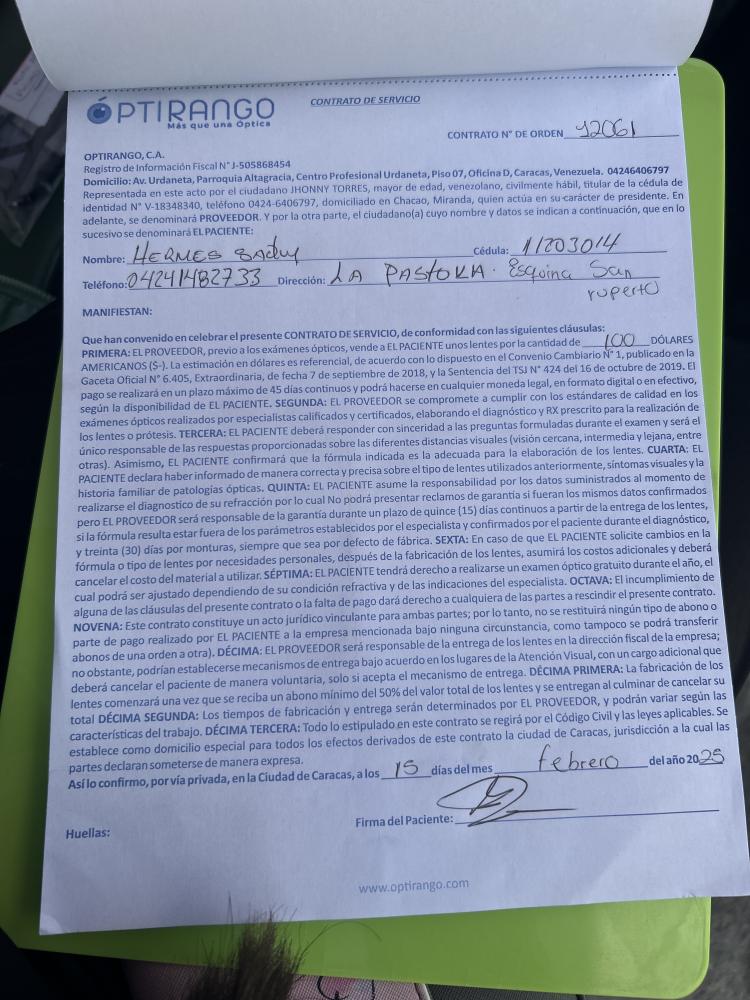 ÓPTIRANGO
Más que una Óptica
CONTRATO DE SERVICIO
CONTRATO N° DE ORDEN 12061
OPTIRANGO, C.A.
Registro de Información Fiscal N° J-505868454
Domicilio: Av. Urdaneta, Parroquia Altagracia, Centro Profesional Urdaneta, Piso 07, Oficina D, Caracas, Venezuela. 04246406797
Representada en este acto por el ciudadano JHONNY TORRES, mayor de edad, venezolano, civilmente hábil, titular de la cédula de
identidad N° V-18348340, teléfono 0424-6406797, domiciliado en Chacao, Miranda, quien actúa en su carácter de presidente. En
adelante, se denominará PROVEEDOR. Y por la otra parte, el ciudadano(a) cuyo nombre y datos se indican a continuación, que en lo
sucesivo se denominará EL PACIENTE:
Nombre: HERMES Cédula: 11203014
Teléfono: 04241482733 Dirección: LA PASTORA. Esquina San
ruperto
MANIFIESTAN:
Que han convenido en celebrar el presente CONTRATO DE SERVICIO, de conformidad con las siguientes cláusulas:
PRIMERA: EL PROVEEDOR, previo a los exámenes ópticos, vende a EL PACIENTE unos lentes por la cantidad de 100 DÓLARES
AMERICANOS ($-). La estimación en dólares es referencial, de acuerdo con lo dispuesto en el Convenio Cambiario N° 1, publicado en la
Gaceta Oficial N° 6.405, Extraordinaria, de fecha 7 de septiembre de 2018, y la Sentencia del TSJ N° 424 del 16 de octubre de 2019. El
pago se realizará en un plazo máximo de 45 días continuos y podrá hacerse en cualquier moneda legal, en formato digital o en efectivo,
según la disponibilidad de EL PACIENTE. SEGUNDA: EL PROVEEDOR se compromete a cumplir con los estándares de calidad en los
exámenes ópticos realizados por especialistas calificados y certificados, elaborando el diagnóstico y RX prescrito para la realización de
los lentes o prótesis. TERCERA: EL PACIENTE deberá responder con sinceridad a las preguntas formuladas durante el examen y será el
único responsable de las respuestas proporcionadas sobre las diferentes distancias visuales (visión cercana, intermedia y lejana, entre
otras). Asimismo, EL PACIENTE confirmará que la fórmula indicada es la adecuada para la elaboración de los lentes. CUARTA: EL
PACIENTE declara haber informado de manera correcta y precisa sobre el tipo de lentes utilizados anteriormente, síntomas visuales y la
historia familiar de patologías ópticas. QUINTA: EL PACIENTE asume la responsabilidad por los datos suministrados al momento de
realizarse el diagnostico de su refracción por lo cual No podrá presentar reclamos de garantía si fueran los mismos datos confirmados
pero EL PROVEEDOR será responsable de la garantía durante un plazo de quince (15) días continuos a partir de la entrega de los lentes,
si la fórmula resulta estar fuera de los parámetros establecidos por el especialista y confirmados por el paciente durante el diagnóstico,
y treinta (30) días por monturas, siempre que sea por defecto de fábrica. SEXTA: En caso de que EL PACIENTE solicite cambios en la
fórmula o tipo de lentes por necesidades personales, después de la fabricación de los lentes, asumirá los costos adicionales y deberá
cancelar el costo del material a utilizar. SÉPTIMA: EL PACIENTE tendrá derecho a realizarse un examen óptico gratuito durante el año, el
cual podrá ser ajustado dependiendo de su condición refractiva y de las indicaciones del especialista. OCTAVA: El incumplimiento de
alguna de las cláusulas del presente contrato o la falta de pago dará derecho a cualquiera de las partes a rescindir el presente contrato.
NOVENA: Este contrato constituye un acto jurídico vinculante para ambas partes; por lo tanto, no se restituirá ningún tipo de abono o
parte de pago realizado por EL PACIENTE a la empresa mencionada bajo ninguna circunstancia, como tampoco se podrá transferir
abonos de una orden a otra). DÉCIMA: EL PROVEEDOR será responsable de la entrega de los lentes en la dirección fiscal de la empresa;
no obstante, podrían establecerse mecanismos de entrega bajo acuerdo en los lugares de la Atención Visual, con un cargo adicional que
deberá cancelar el paciente de manera voluntaria, solo si acepta el mecanismo de entrega. DÉCIMA PRIMERA: La fabricación de los
lentes comenzará una vez que se reciba un abono mínimo del 50% del valor total de los lentes y se entregan al culminar de cancelar su
total DÉCIMA SEGUNDA: Los tiempos de fabricación y entrega serán determinados por EL PROVEEDOR, y podrán variar según las
características del trabajo. DÉCIMA TERCERA: Todo lo estipulado en este contrato se regirá por el Código Civil y las leyes aplicables. Se
establece como domicilio especial para todos los efectos derivados de este contrato la ciudad de Caracas, jurisdicción a la cual las
partes declaran someterse de manera expresa.
Así lo confirmo, por vía privada, en la Ciudad de Caracas, a los 15 días del mes febrero del año 2025
Firma del Paciente:
Huellas:
www.optirango.com